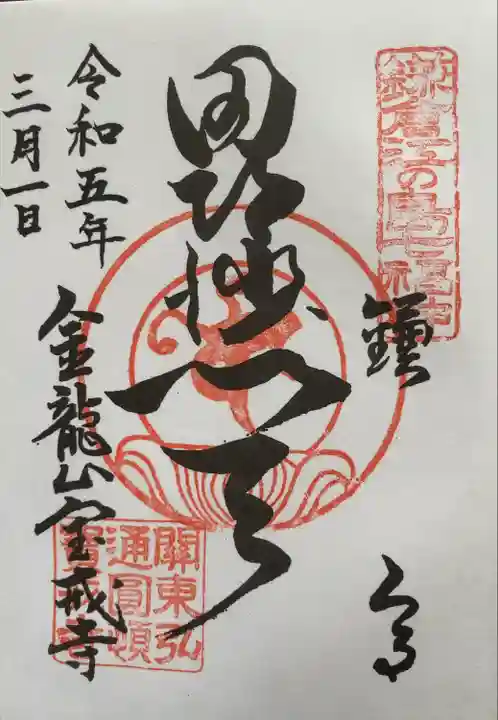 鎌倉江の島七福神
鎌倉
毘沙門天
令和五年
三月一日
金龍山宝戒寺
關東弘
通圓頓
寶戒寺